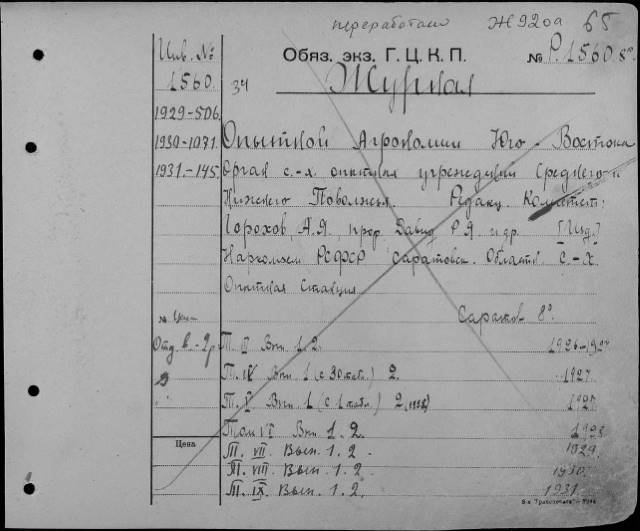 переработан Ж920а 65
Инв. № Обяз. экз. Г.Ц.К.П. № Р.1560 8°
1560. 34 Журнал
1929-506.
1930-1031. Опытной Агрономии Юго-Востока
1931.-145. Орган с.-х. опытных учреждений Среднего и
Нижнего Поволжья. Редакц. Комитет:
Горохов, А.Я., проф. Давид Р.Э. и др. [Изд.]
Наркомзем РСФСР Саратовск. Областн. С.-Х.
Опытная Станция
№ Саратов 8°.
Отд. в. - 2р. Т. III Вып. 1.2. 1926-1927
Т. IV Вып. 1 (с 30 табл.) 2. 1927.
Т. V Вып. 1 (с 1 табл.) 2 (1928) 1927
Том VI Вып. 1.2. 1928
Цена Т. VII. Вып. 1.2. 1929.
Т. VIII. Вып. 1.2. 1930.
Т. IX Вып. 1.2. 1931.